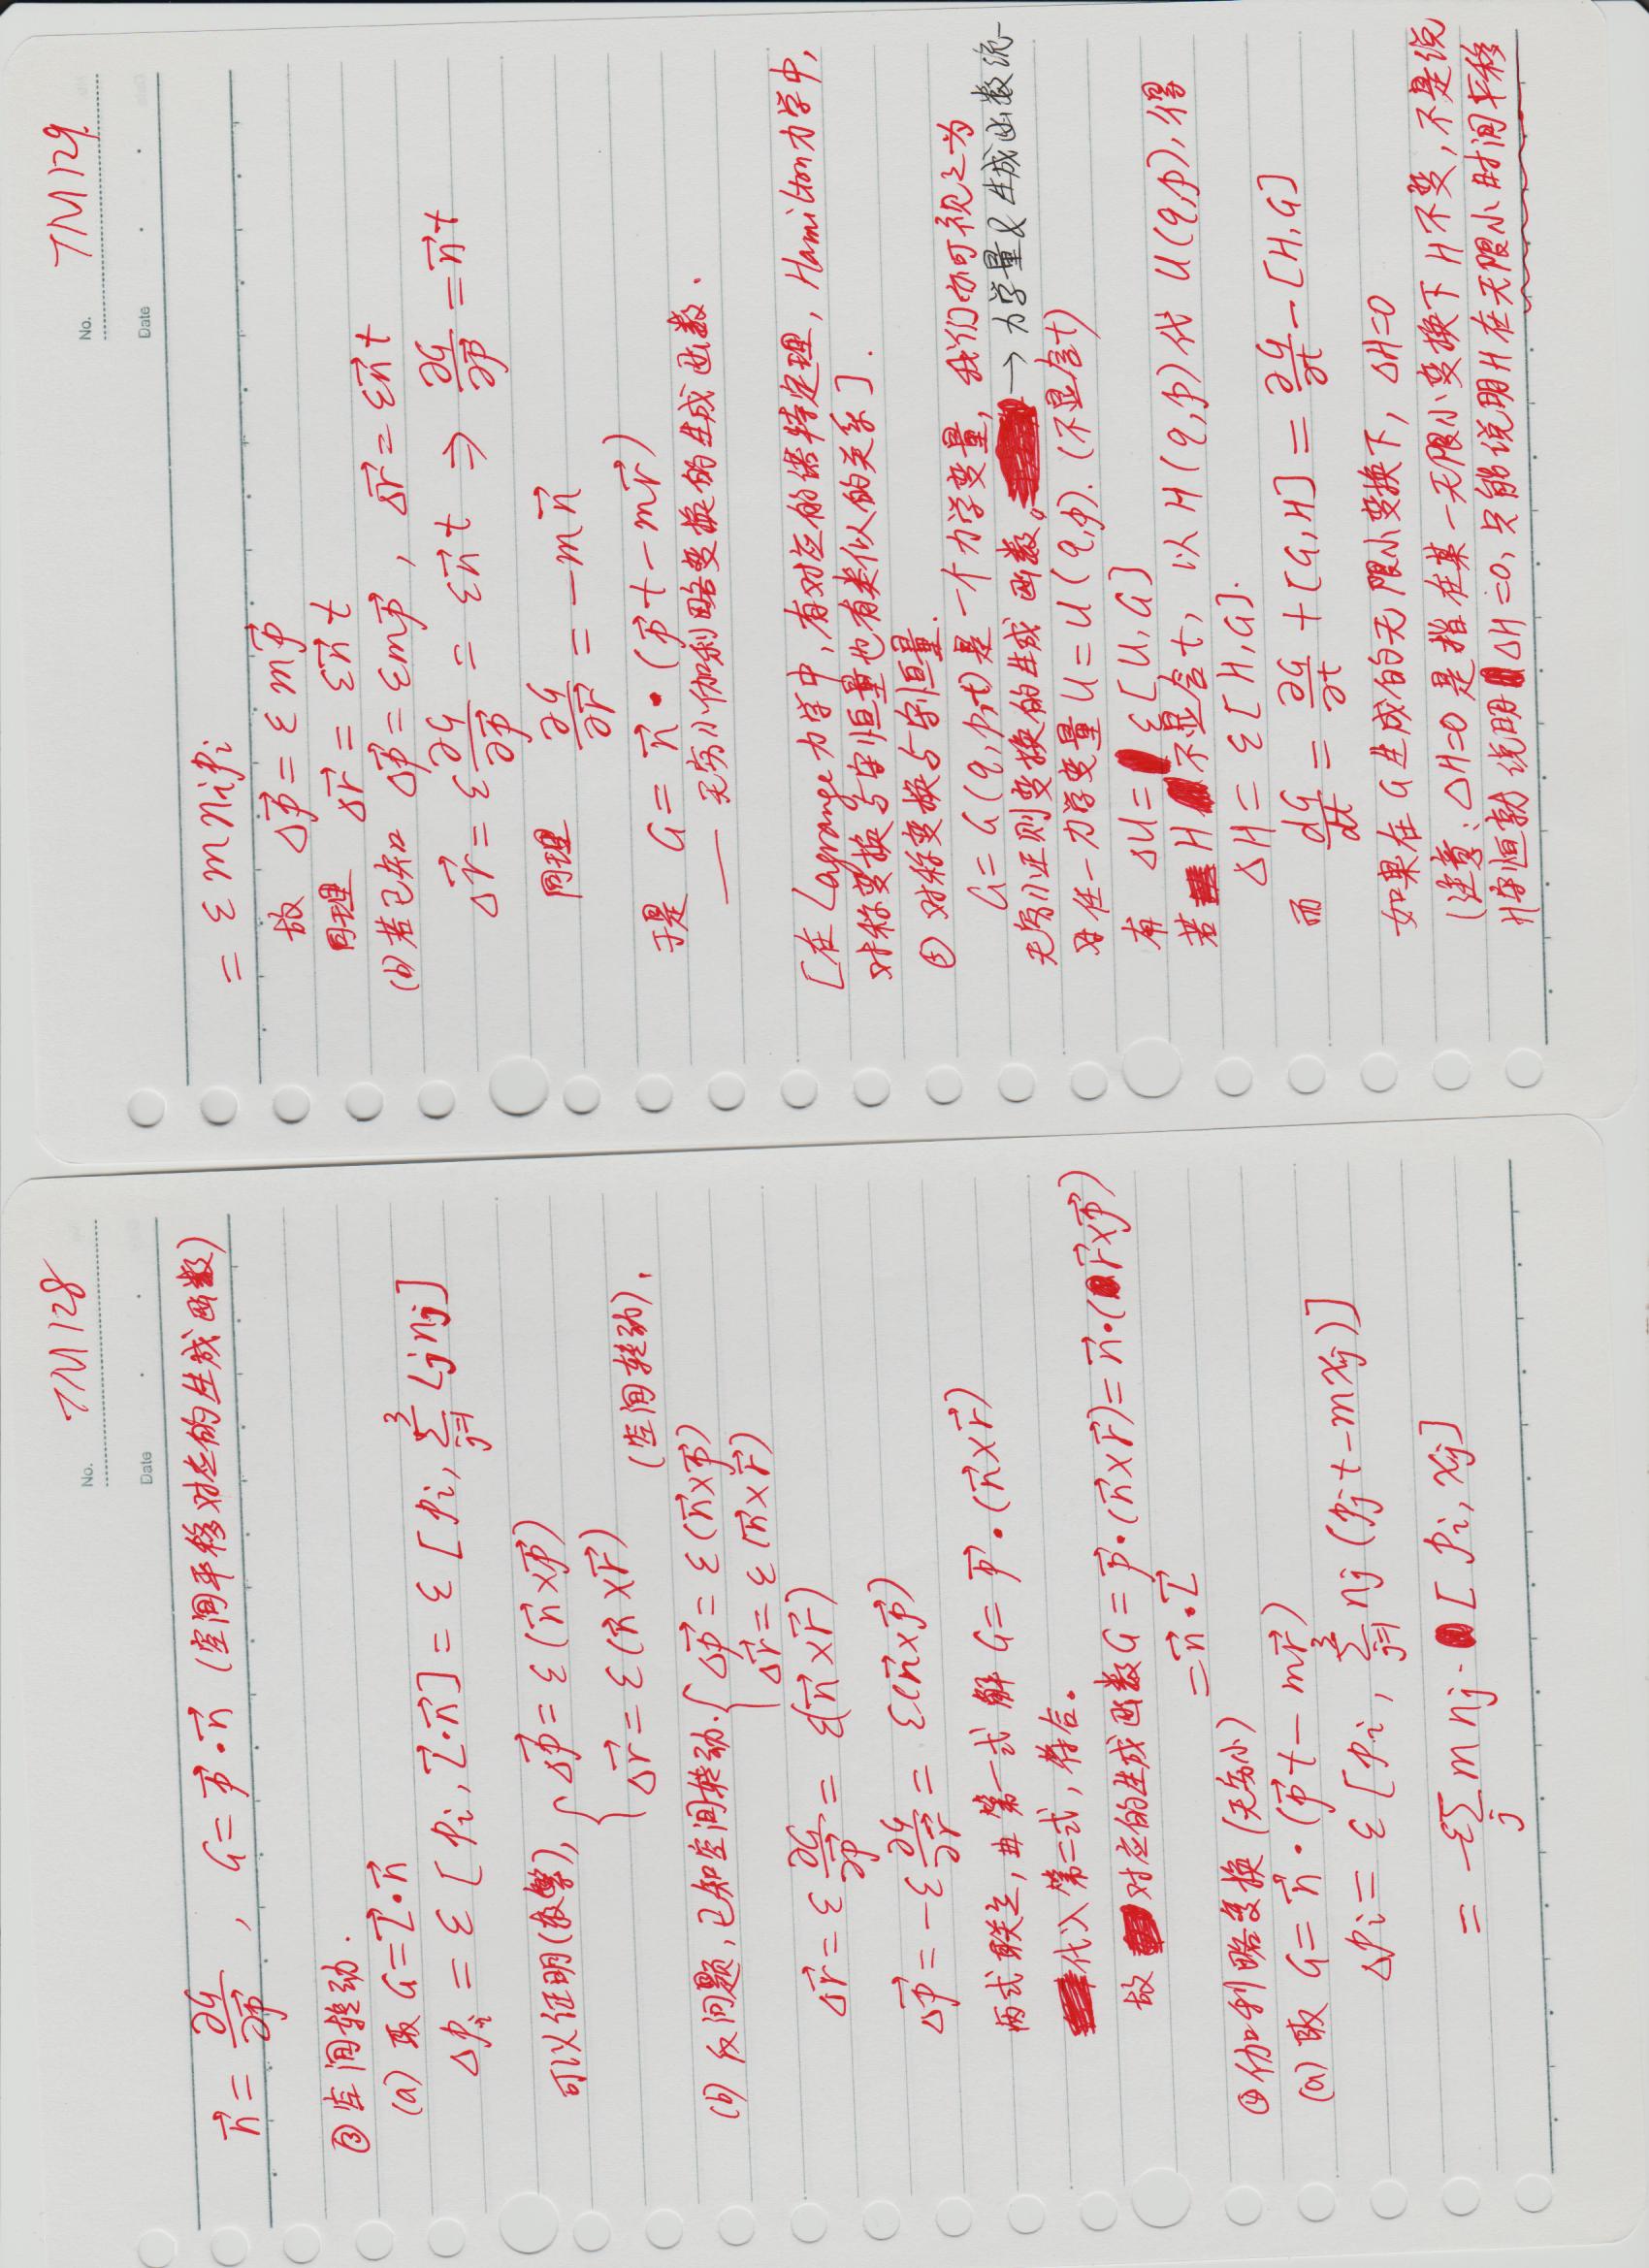 No. TM128
Date
n⃗ = ∂G/∂p⃗ , G = p⃗·n⃗ (空间平移对应的生成函数)
③空间转动.
(a) 取 G=L⃗·n⃗
Δpᵢ = ε [pᵢ, L⃗·n⃗] = ε [pᵢ, Σ_{j=1}^{3} Lⱼnⱼ]
可以证明(较繁), { Δp⃗ = ε(n⃗×p⃗)
Δr⃗ = ε(n⃗×r⃗)
(空间转动).
(b) 反问题, 已知空间转动. { Δp⃗ = ε(n⃗×p⃗)
Δr⃗ = ε(n⃗×r⃗)
Δr⃗ = ε ∂G/∂p⃗ = ε(n⃗×r⃗)
Δp⃗ = -ε ∂G/∂r⃗ = ε(n⃗×p⃗)
两式联立, 由第一式解 G = p⃗·(n⃗×r⃗)
代入第二式, 符合。
故 对应的生成函数 G = p⃗·(n⃗×r⃗) = n⃗·(r⃗×p⃗)
= n⃗·L⃗
④伽利略变换 (无穷小)
(a) 取 G = n⃗·(p⃗t - mr⃗)
Δpᵢ = ε [pᵢ, Σ_{j=1}^{3} nⱼ(pⱼt - mxⱼ)]
= -εΣ_j m nⱼ·[pᵢ, xⱼ]
No. TM129
Date
= ε m nᵢpᵢ
故 Δp⃗ = ε m p⃗
同理 Δr⃗ = εn⃗t
(b) 若已知 Δp⃗ = εmp⃗ , Δr⃗ = εn⃗t
Δr⃗ = ε ∂G/∂p⃗ = εn⃗t ⇒ ∂G/∂p⃗ = n⃗t
同理 ∂G/∂r⃗ = -mn⃗
于是 G = n⃗·(p⃗t - mr⃗)
—— 无穷小伽利略变换的生成函数.
[在Lagrange力学中, 有对应的诺特定理, Hamilton力学中,
对称变换与守恒量也有类似的关系].
⑤ 对称变换与守恒量.
G = G(q,p,t)是一个力学变量, 我们亦可视之为
无穷小正则变换的生成函数。 → 力学量&生成函数统一
对任一力学变量 U = U(q,p). (不显含t)
有 ΔU = ε[U,G]
若 H 不显含t, 以 H(q,p) 代 U(q,p), 得
ΔH = ε[H,G].
而 dG/dt = ∂G/∂t + [G,H] = ∂G/∂t - [H,G]
如果在G生成的无限小变换下, ΔH=0
(注意: ΔH=0 是指在某一无限小变换下 H 不变, 不是说
H守恒就说明 ΔH=0, 只能说明H在无限小时间平移